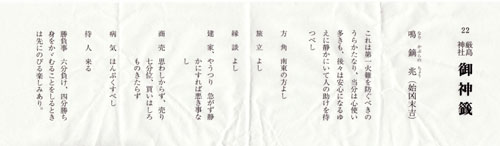 22
厳島神社
御神籤
鳴鏑兆（始凶末吉）
これは第一火難を防ぐべきの
うらかたなり、当分は心使い
多きも、後々は安心になるゆ
えに静かにいて人の助けを待
つべし
方角 南東の方よし
旅立 よし
縁談 よし
建家、やうつり 急がず静
かにすれば悪き事な
し
商売 思わしからず、売り
七分位、買いはしろ
ものきたらず
病気 ほんぷくすべし
待人 来る
勝負事 六分負け、四分勝ち
身をかゞむることをしるときは
先にのびる楽しみあり。